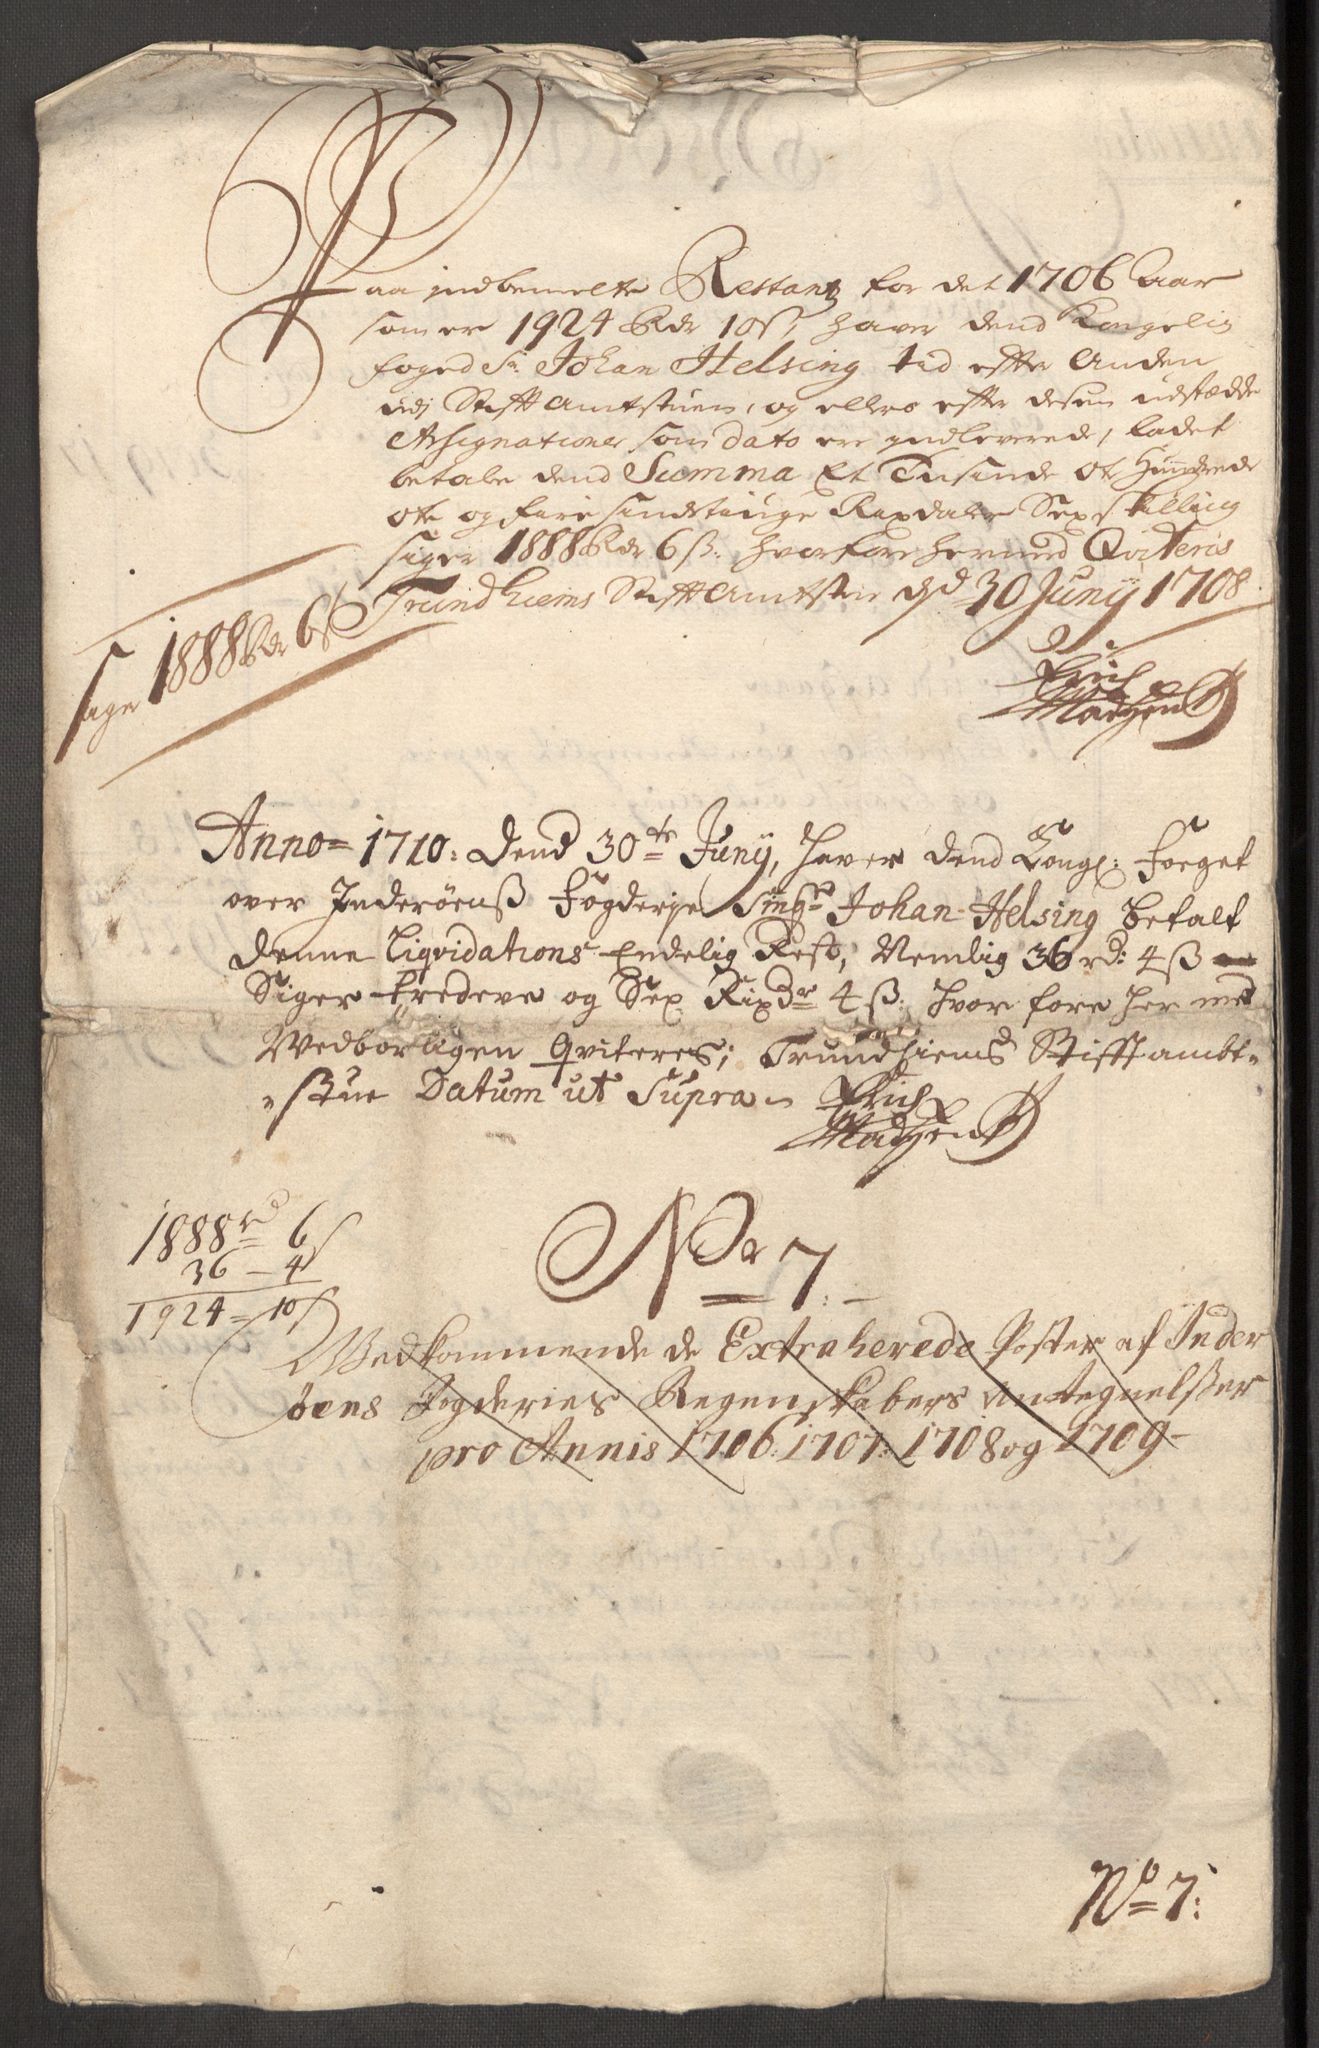 Paa indbemelte Restantz for det 1706 Aar
som er 1924 Rdr 10ß, haver dend Kongelig
foged Sr. Johan Helsing tid efter anden
udj Stiftamtstuen, og ellers efter desen udstædde
Assignationer som dato ere indleverede, ladet
betale dend Summa Et Tusinde ote Hundrede
ote og fire sindstiuge Rixdaler Sex skilling
siger 1888 Rdr 6ß. hvorfore hermed Qviteris
Trundhiems Stiftamtstue dd 30 Junij 1708
siger 1888 Rdr 6ß
Erich
Madtzen
Anno= 1710: Dend 30te Junij, haver dend Kongl: foeget
over Inderøens fogderje Singr Johan Helsing betalt
denne Liqvidations Endelig Rest, Nemlig 36 rd: 4 ß
Siger tredeve og Sex Rixdr 4 ß: hvor fore her med
Vedbørligen Qviteres; Trundhiems Stifftambt=
=stue Datum ut Supra
Erich
Madtzen
1888 rd 6ß
36 – 4
1924 = 10ß
Nr 7:
Vedkommende de Extraherede Poster af Inder
øens Fogderies Regenskabers Antegnelsser
pro Annis 1706: 1707: 1708 og 1709
No 7: